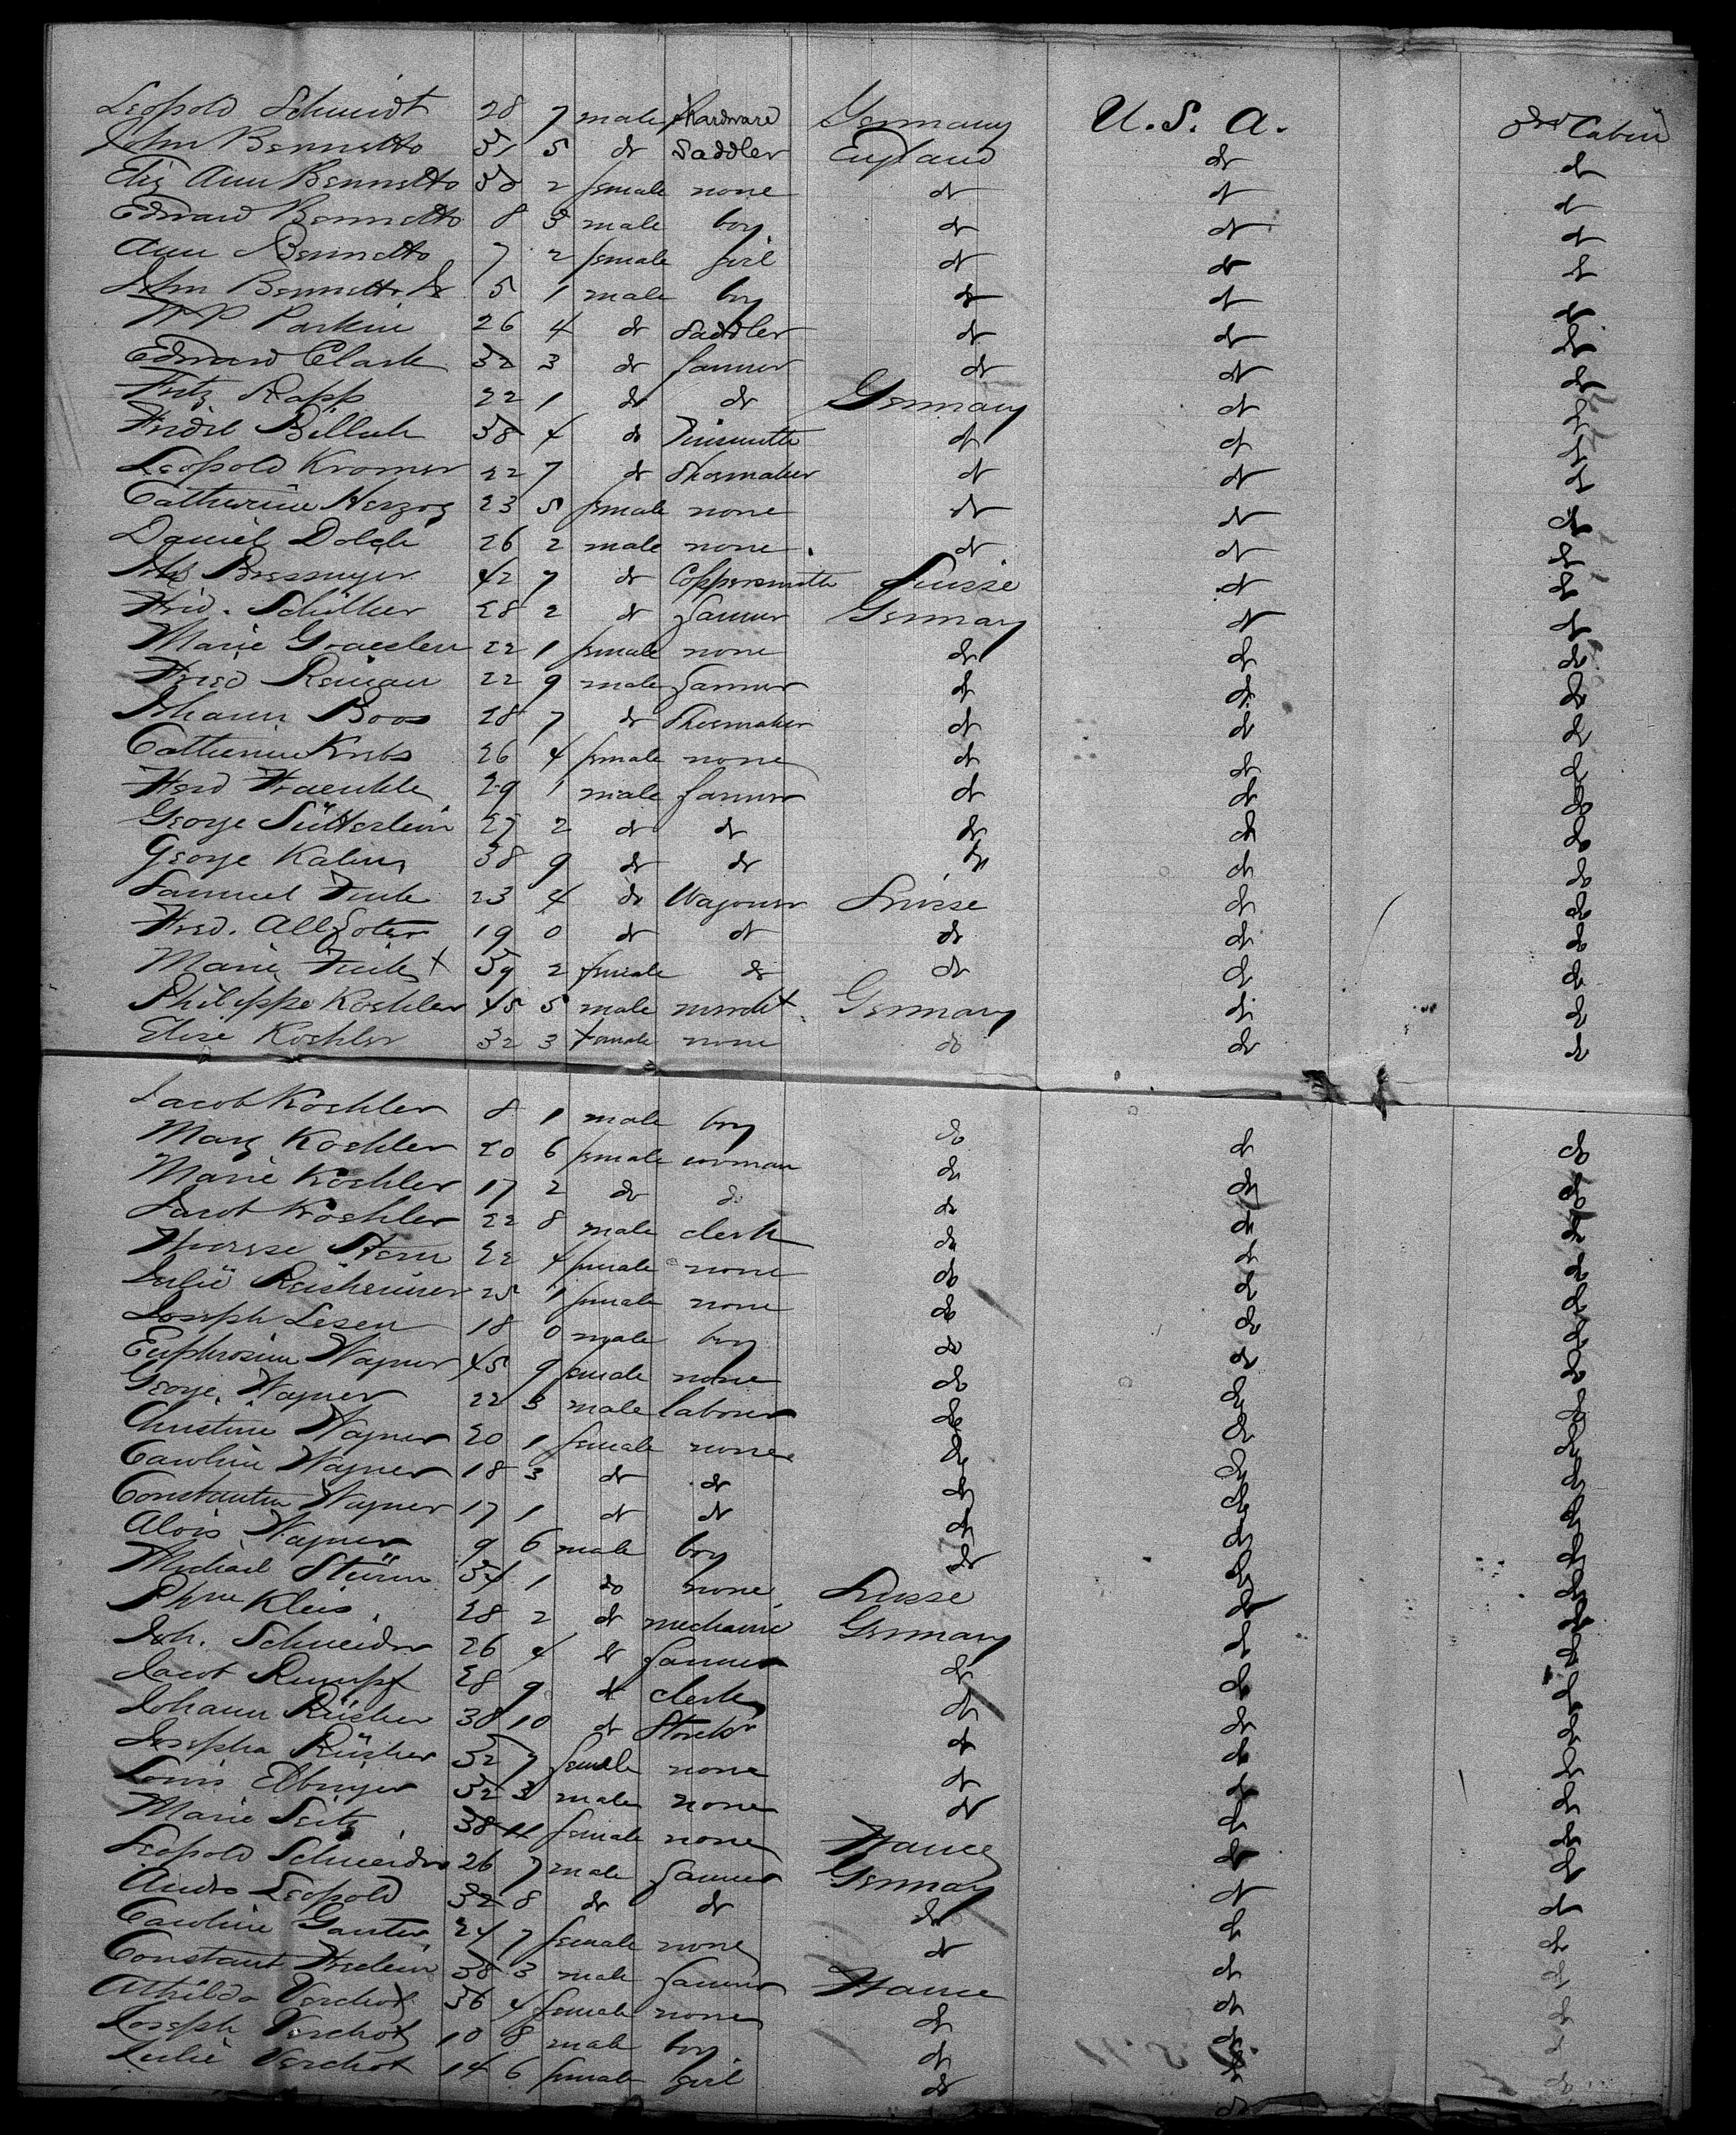 Leopold Schmidt 28 7 male Hardware Germany U.S.A. 2nd Cabin
John Bennetto 31 5 do Saddler England do do
Eliz Ann Bennetto 33 2 female none do do do
Edward Bennetto 8 3 male boy do do do
Ann Bennetto 7 2 female girl do do do
John Bennetto Jr 5 1 male boy do do do
W P Parkin 26 4 do Saddler do do do
Edward Clark 32 3 do farmer do do do
Fritz Rapp 22 1 do do Germany do do
38 4 do Tinsmith do do do
Leopold Kromer 22 7 do Shoemaker do do do
Catherine Herzog 23 5 female none do do do
Daniel 26 2 male none do do do
42 7 do Coppersmith Suisse do do
Frid. 28 2 do farmer Germany do do
Marie 22 1 female none do do do
Fried 22 9 male farmer do do do
Johann Boos 28 7 do Shoemaker do do do
Catherine Krebs 26 4 female none do do do
Fraenkle 29 1 male farmer do do do
George Sütterlein 27 2 do do do do do
George 38 9 do do do do do
Samuel 23 4 do Wagoner Suisse do do
Fred. 19 0 do do do do do
Marie 39 2 female do do do do
Philippe Koehler 45 5 male mercht Germany do do
Elise Koehler 32 3 Female none do do do
Jacob Koehler 8 1 male boy do do do
Mary Koehler 20 6 female woman do do do
Marie Koehler 17 2 do do do do do
Jacob Koehler 22 8 male clerk do do do
Therese Stern 22 4 female none do do do
Julie 25 1 female none do do do
Joseph Lesen 18 0 male boy do do do
Euphrosine Wagner 45 9 female none do do do
George Wagner 22 3 male laborer do do do
Christine Wagner 20 1 female none do do do
Caroline Wagner 18 3 do do do do do
Constantin Wagner 17 1 do do do do do
Alois Wagner 9 6 male boy do do do
Michael Stürm 34 1 do none Suisse do do
Klein 28 2 do mechanic Germany do do
Joh. Schneider 26 4 do farmer do do do
Jacob Rumpf 28 9 do clerk do do do
Johann Rüscher 38 10 do do do do
Josepha Rüscher 32 7 female none do do do
Louis Ebinger 32 3 male none do do do
Marie Seitz 38 11 female none France do do
Leopold Schneider 26 7 male farmer Germany do do
Leopold 32 8 do do do do do
Caroline Ganter 24 7 female none do do do
Constant 38 3 male farmer France do do
Athilda Verchot 36 4 female none do do do
Joseph Verchot 10 8 male boy do do do
Julie Verchot 14 6 female girl do do do